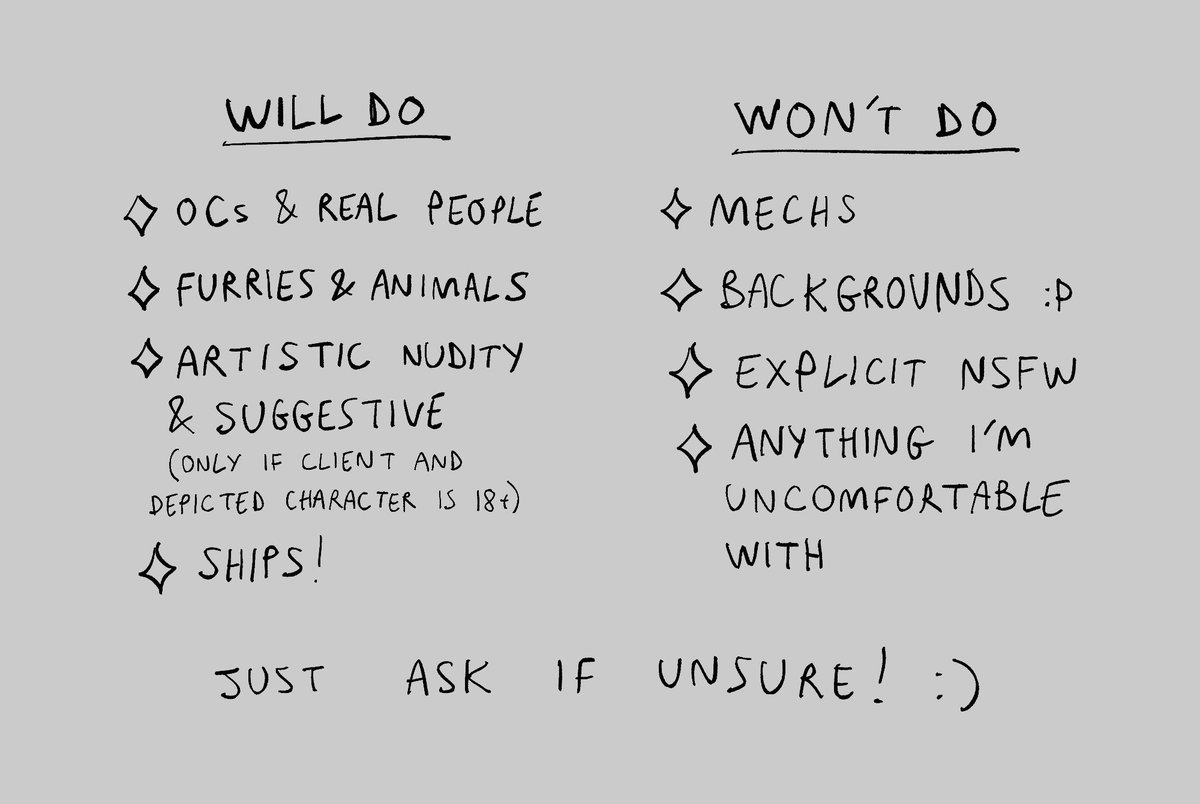 WILL DO
OCs & REAL PEOPLE
FURRIES & ANIMALS
ARTISTIC NUDITY
& SUGGESTIVE
(ONLY IF CLIENT AND
DEPICTED CHARACTER IS 18+)
SHIPS!
WON'T DO
MECHS
BACKGROUNDS :P
EXPLICIT NSFW
ANYTHING I'M
UNCOMFORTABLE
WITH
JUST ASK IF UNSURE! :)